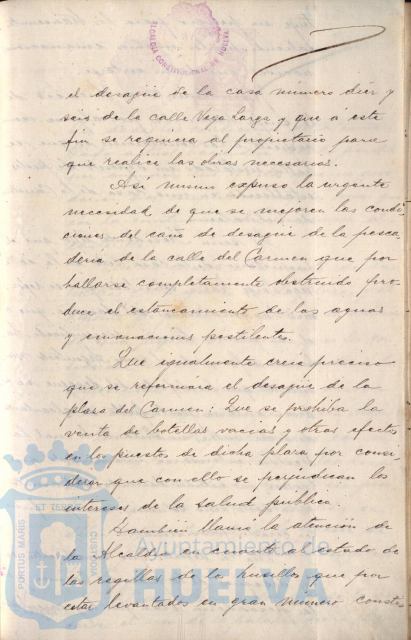 ALCALDIA CONSTITUCIONAL DE HUELVA
el desagüe de la casa numero diez y
seis de la calle Vega Larga y que á este
fin se requiera al propietario para
que realice las obras necesarias.
Asi mismo expuso la urgente
necesidad de que se mejoren las condi-
ciones del caño de desagüe de la pesca-
deria de la calle del Carmen que por
hallarse completamente obstruido pro-
duce el estancamiento de las aguas
y emanaciones pestilente.
Que igualmente creia preciso
que se reformara el desagüe de la
plaza del Carmen: Que se prohiba la
venta de botellas vacias y otros efectos
en los puestos de dicha plaza por consi-
derar que con ello se perjudican los
intereses de la salud pública.
Tambien llama la atención de
la Alcaldia en cuanto al estado de
las regillas de los husillos que por
estar levantados en gran número consti-
PORTUS MARIS
ET TERRAE
CUSTODIA
Ayuntamiento de
HUELVA